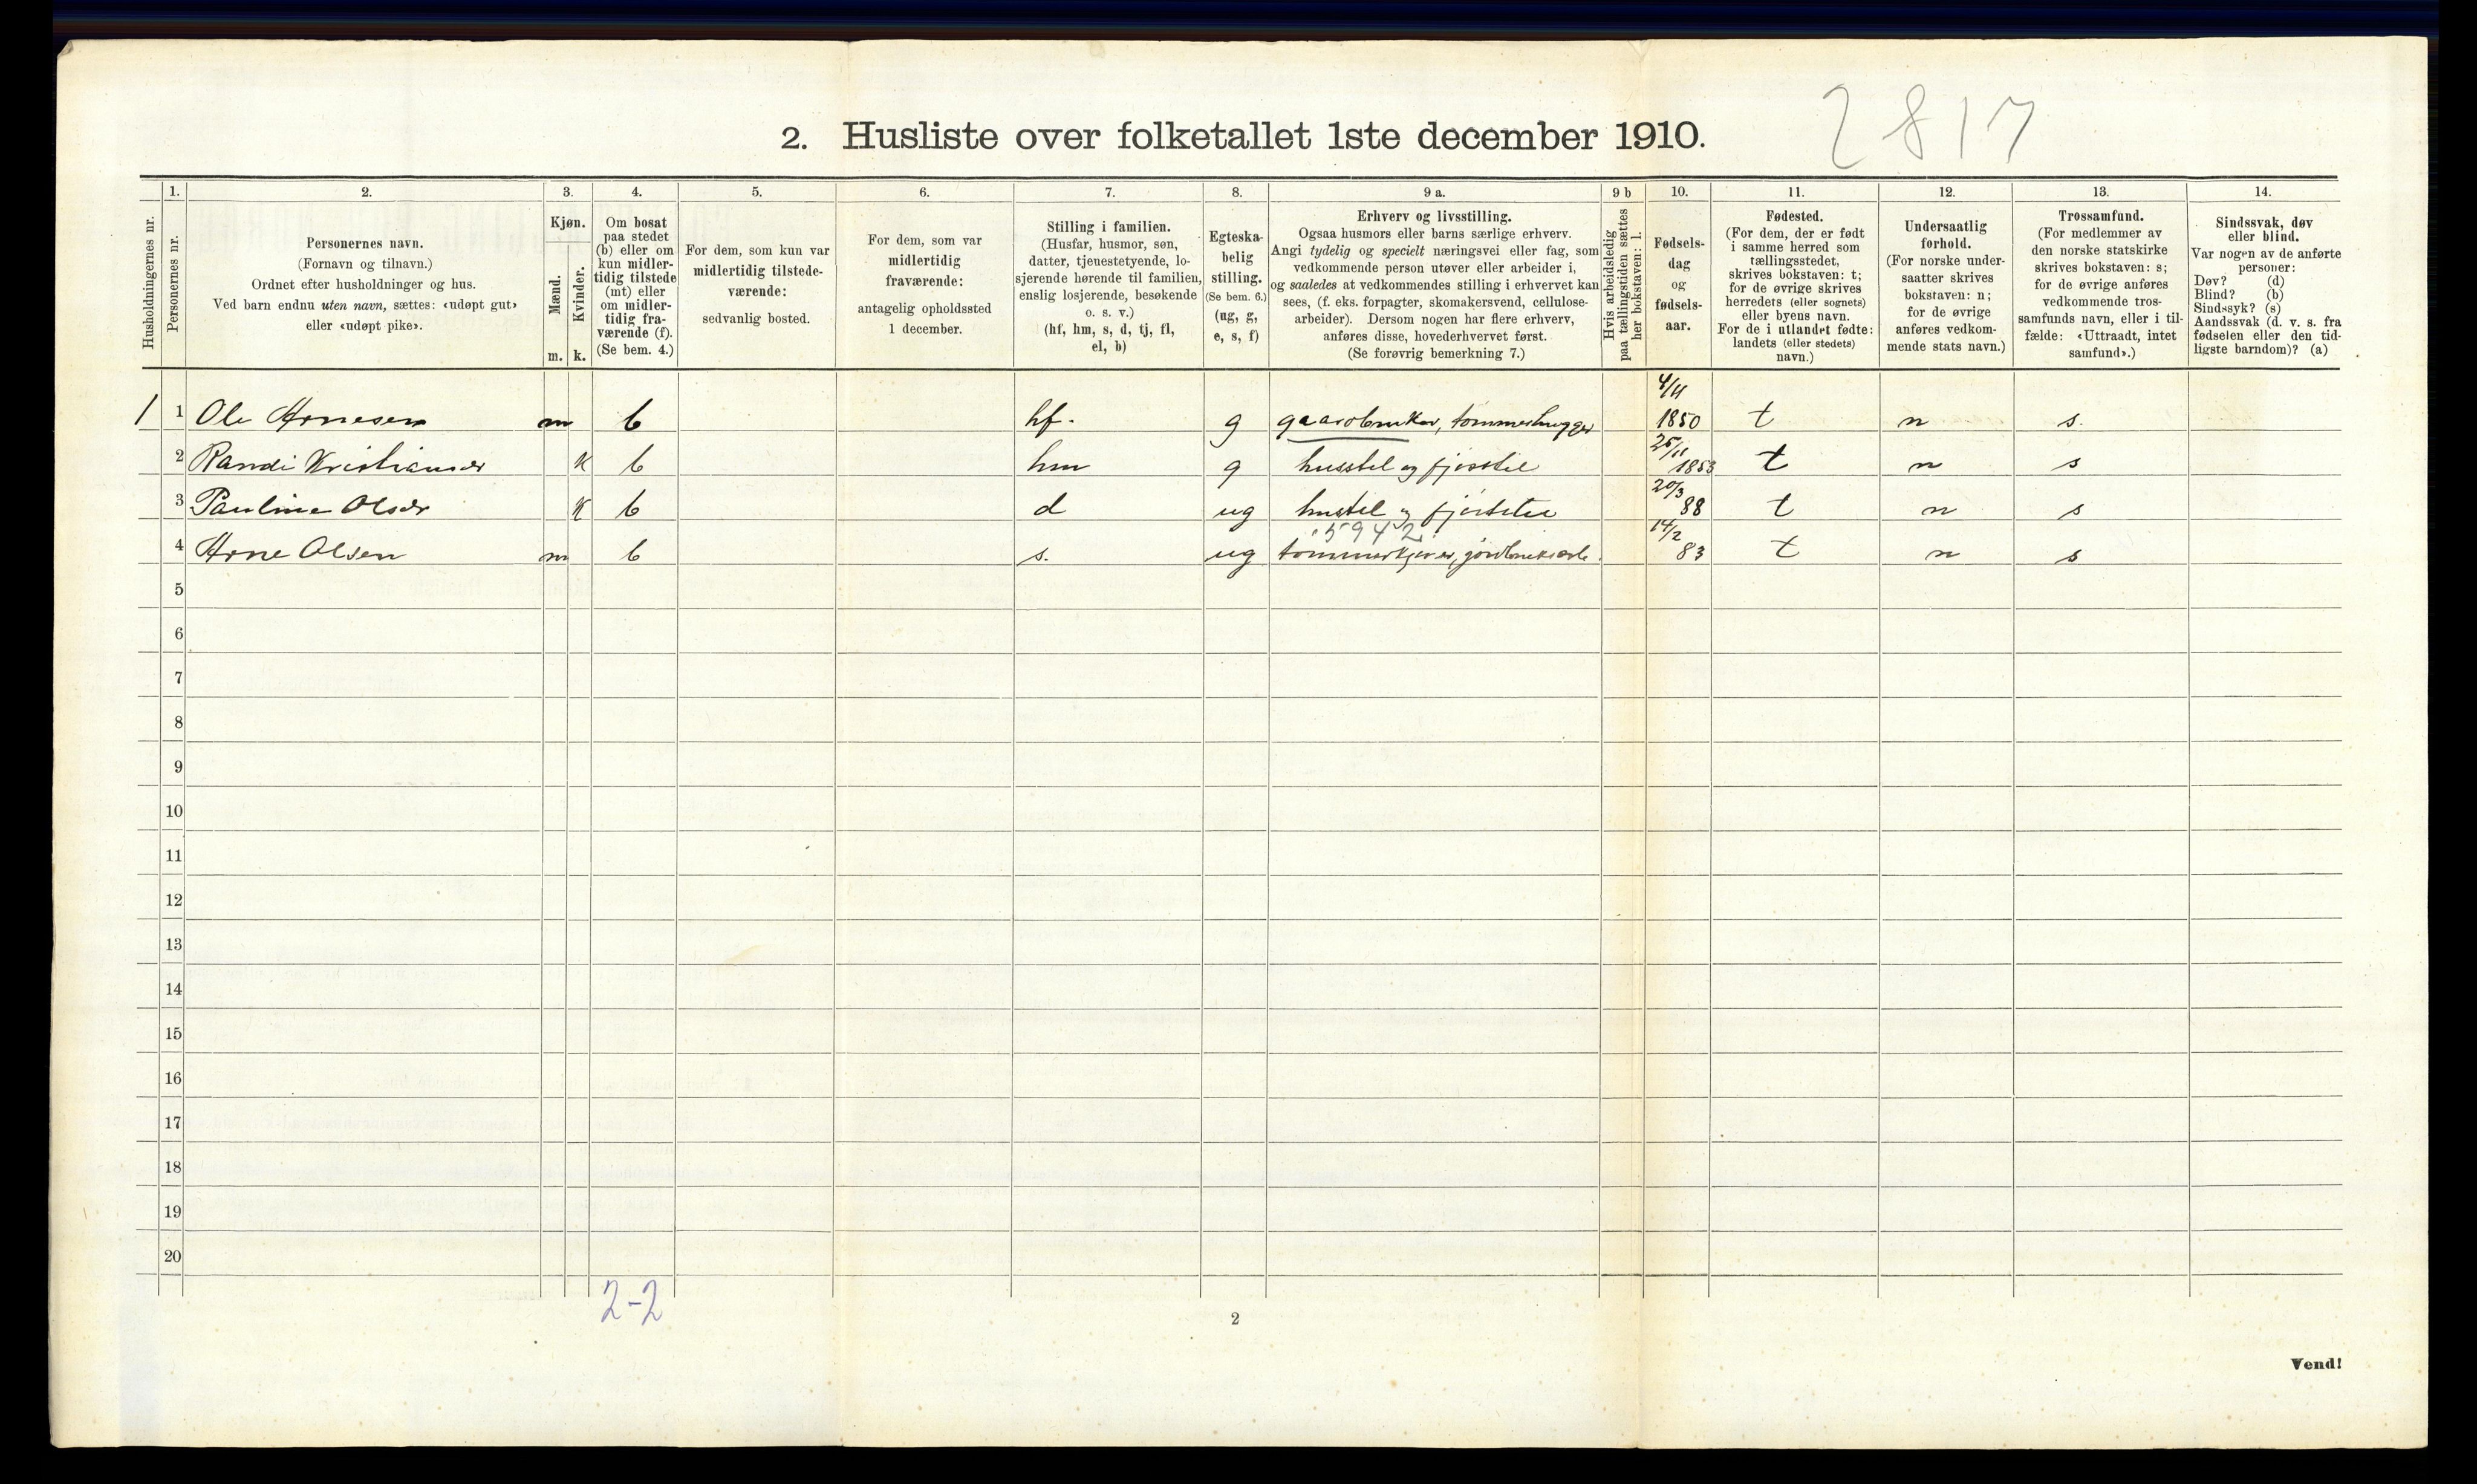 2817
2. Husliste over folketallet 1ste december 1910.
Husholdningernes nr.
1. Personernes nr.
2. Personernes navn.
(Fornavn og tilnavn.)
Ordnet efter husholdninger og hus.
Ved barn endnu uten navn, sættes: «udøpt gut»
eller «udøpt pike».
3. Kjøn.
Mænd. m.
Kvinder. k.
4. Om bosat
paa stedet
(b) eller om
kun midler-
tidig tilstede
(mt) eller
om midler-
tidig fra-
værende (f).
(Se bem. 4.)
5. For dem, som kun var
midlertidig tilstede-
værende:
sedvanlig bosted.
6. For dem, som var
midlertidig
fraværende:
antagelig opholdssted
1 december.
7. Stilling i familien.
(Husfar, husmor, søn,
datter, tjenestetyende, lo-
sjerende hørende til familien,
enslig losjerende, besøkende
o. s. v.)
(hf, hm, s, d, tj, fl,
el, b)
8. Egteska-
belig
stilling.
(Se bem. 6.)
(ug, g,
e, s, f)
9 a. Erhverv og livsstilling.
Ogsaa husmors eller barns særlige erhverv.
Angi tydelig og specielt næringsvei eller fag, som
vedkommende person utøver eller arbeider i,
og saaledes at vedkommendes stilling i erhvervet kan
sees, (f. eks. forpagter, skomakersvend, cellulose-
arbeider). Dersom nogen har flere erhverv,
anføres disse, hovederhvervet først.
(Se forøvrig bemerkning 7.)
9 b Hvis arbeidsledig
paa tællingstiden sættes
her bokstaven: l.
10. Fødsels-
dag
og
fødsels-
aar.
11. Fødested.
(For dem, der er født
i samme herred som
tællingsstedet,
skrives bokstaven: t;
for de øvrige skrives
herredets (eller sognets)
eller byens navn.
For de i utlandet fødte:
landets (eller stedets)
navn.)
12. Undersaatlig
forhold.
(For norske under-
saatter skrives
bokstaven: n;
for de øvrige
anføres vedkom-
mende stats navn.)
13. Trossamfund.
(For medlemmer av
den norske statskirke
skrives bokstaven: s;
for de øvrige anføres
vedkommende tros-
samfunds navn, eller i til-
fælde: «Uttraadt, intet
samfund».)
14. Sindssvak, døv
eller blind.
Var nogen av de anførte
personer:
Døv? (d)
Blind? (b)
Sindssyk? (s)
Aandssvak (d. v. s. fra
fødselen eller den tid-
ligste barndom)? (a)
1 1 Ole Arnesen m b hf. g gaardbruker, tømmerhugger 4/11 1850 t n s.
2 Randi Kristiansdr k b hm g husstel og fjøsstel 25/11 1853 t n s
3 Pauline Olsdr k b d ug husstel og fjøsstel 20/3 88 t n s
5942
4 Arne Olsen m b s. ug tømmerkjører, jordbruksarb. 14/2 83 t n s
5
6
7
8
9
10
11
12
13
14
15
16
17
18
19
20
2-2
2
Vend!